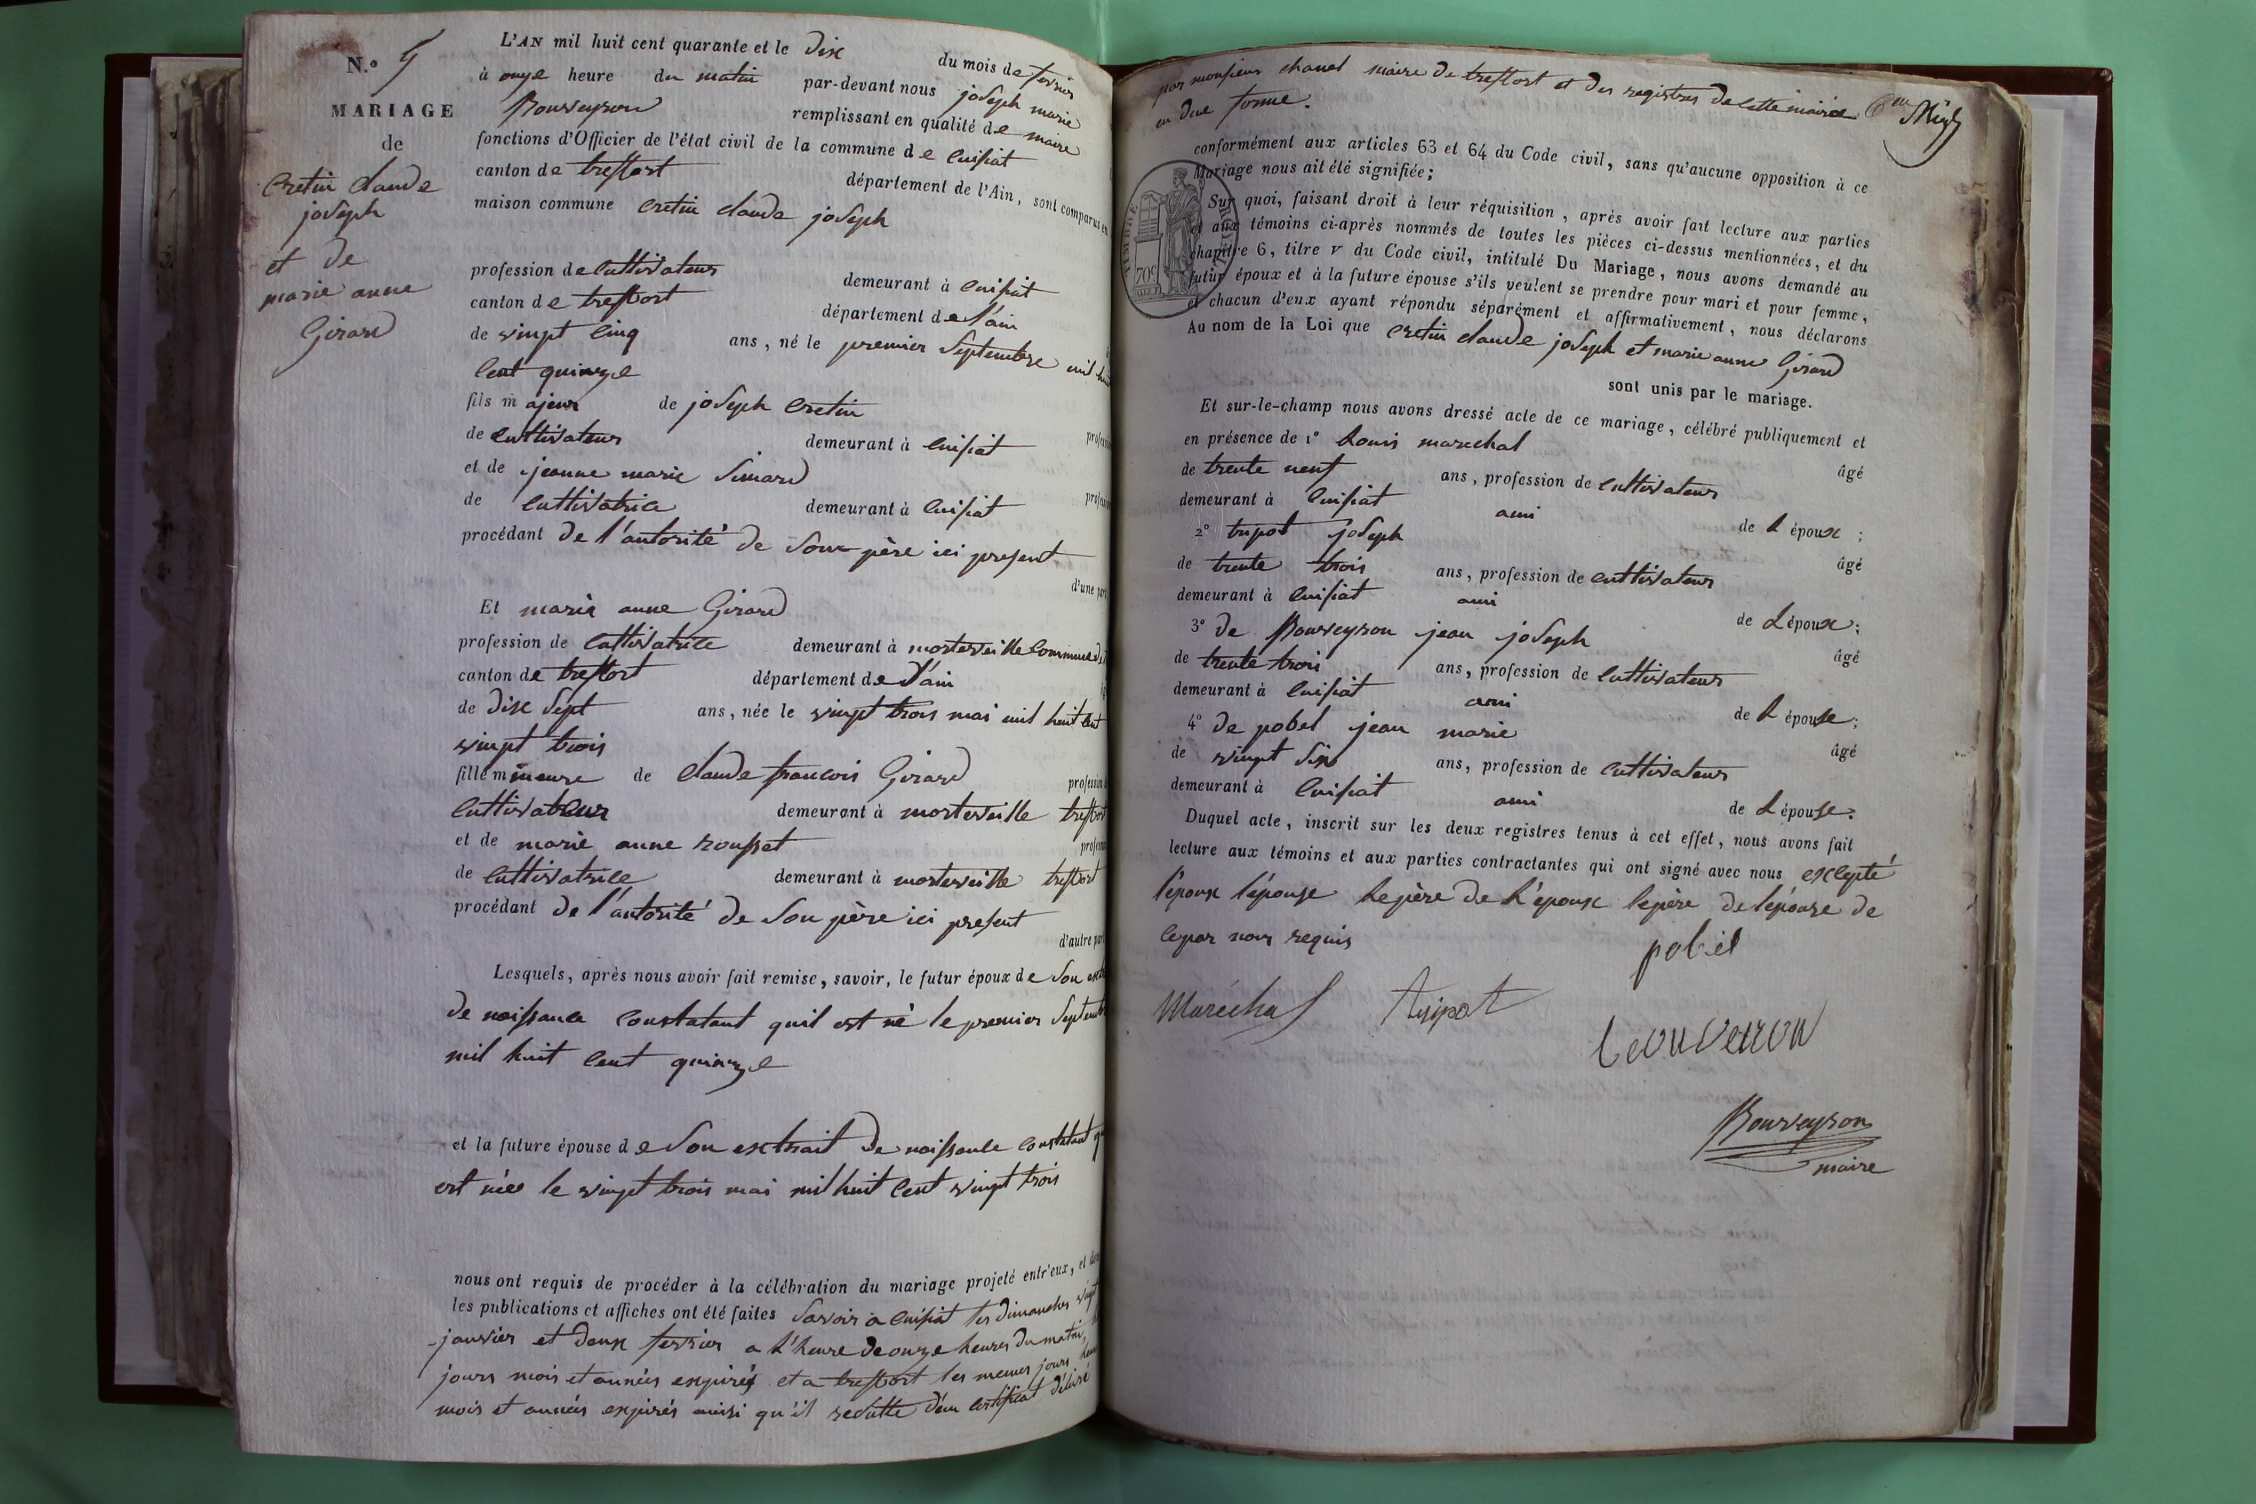 N.o 5
MARIAGE
de
cretin claude
joseph
et de
marie anne
Girard
L'AN mil huit cent quarante et le dix du mois de fevrier
à onze heure du matin par-devant nous joseph marie
Bouveyron remplissant en qualité de maire
fonctions d'Officier de l'état civil de la commune de cuisiat
canton de treffort département de l'Ain, sont comparus en
maison commune cretin claude joseph
profession de cultivateur demeurant à cuisiat
canton de treffort département de l'ain
de vingt cinq ans, né le premier septembre mil huit
cent quinze
fils majeur de joseph cretin
de cultivateur demeurant à cuisiat
et de jeanne marie
de cultivatrice demeurant à cuisiat
procédant de l'autorité de son père ici present
d'une part
Et marie anne Girard
profession de cultivatrice demeurant à morterveille commune de
canton de treffort département de l'ain
de dix sept ans, née le vingt trois mai mil huit cent
vingt trois
fille mineure de claude francois Girard profession
cultivateur demeurant à morterveille treffort
et de marie anne rousset
de cultivatrice demeurant à morterveille treffort
procédant de l'autorité de son père ici present
d'autre part
Lesquels, après nous avoir fait remise, savoir, le futur époux de son
de naissance constatant quil est né le premier septembre
mil huit cent quinze
et la future épouse de son extrait de naissance constatant
est née le vingt trois mai mil huit cent vingt trois
nous ont requis de procéder à la célébration du mariage projeté entr'eux, et
les publications et affiches ont été faites savoir a cuisiat les dimanches vingt
janvier et deux fevrier a l'heure de onze heures du matin,
jours mois et années expirés et a treffort les memes jours
mois et années expirés ainsi qu'il resulte d'un certificat délivré
par monsieur chanel maire de treffort et des registres de cette mairie
en due forme.
conformément aux articles 63 et 64 du Code civil, sans qu'aucune opposition à ce
Mariage nous ait été signifiée;
Sur quoi, faisant droit à leur réquisition, après avoir fait lecture aux parties
et aux témoins ci-après nommés de toutes les pièces ci-dessus mentionnées, et du
chapitre 6, titre V du Code civil, intitulé Du Mariage, nous avons demandé au
futur époux et à la future épouse s'ils veulent se prendre pour mari et pour femme,
et chacun d'eux ayant répondu séparément et affirmativement, nous déclarons
Au nom de la Loi que cretin claude joseph et marie anne Girard
sont unis par le mariage.
Et sur-le-champ nous avons dressé acte de ce mariage, célébré publiquement et
en présence de 1o Louis marechal âgé
de trente neuf ans, profession de cultivateur
demeurant à cuisiat ami de l'époux;
2o tripot joseph âgé
de trente trois ans, profession de cultivateur
demeurant à cuisiat ami de l'époux;
3o de Bouveyron jean joseph âgé
de trente trois ans, profession de cultivateur
demeurant à cuisiat ami de l'épouse;
4o de pobel jean marie âgé
de vingt six ans, profession de cultivateur
demeurant à cuisiat ami de l'épouse.
Duquel acte, inscrit sur les deux registres tenus à cet effet, nous avons fait
lecture aux témoins et aux parties contractantes qui ont signé avec nous excepté
l'époux l'épouse le père de l'époux le père de l'épouse de
ce par nous requis
pobel
Maréchal tripot
Bouveyron
maire
TIMBRE
70c